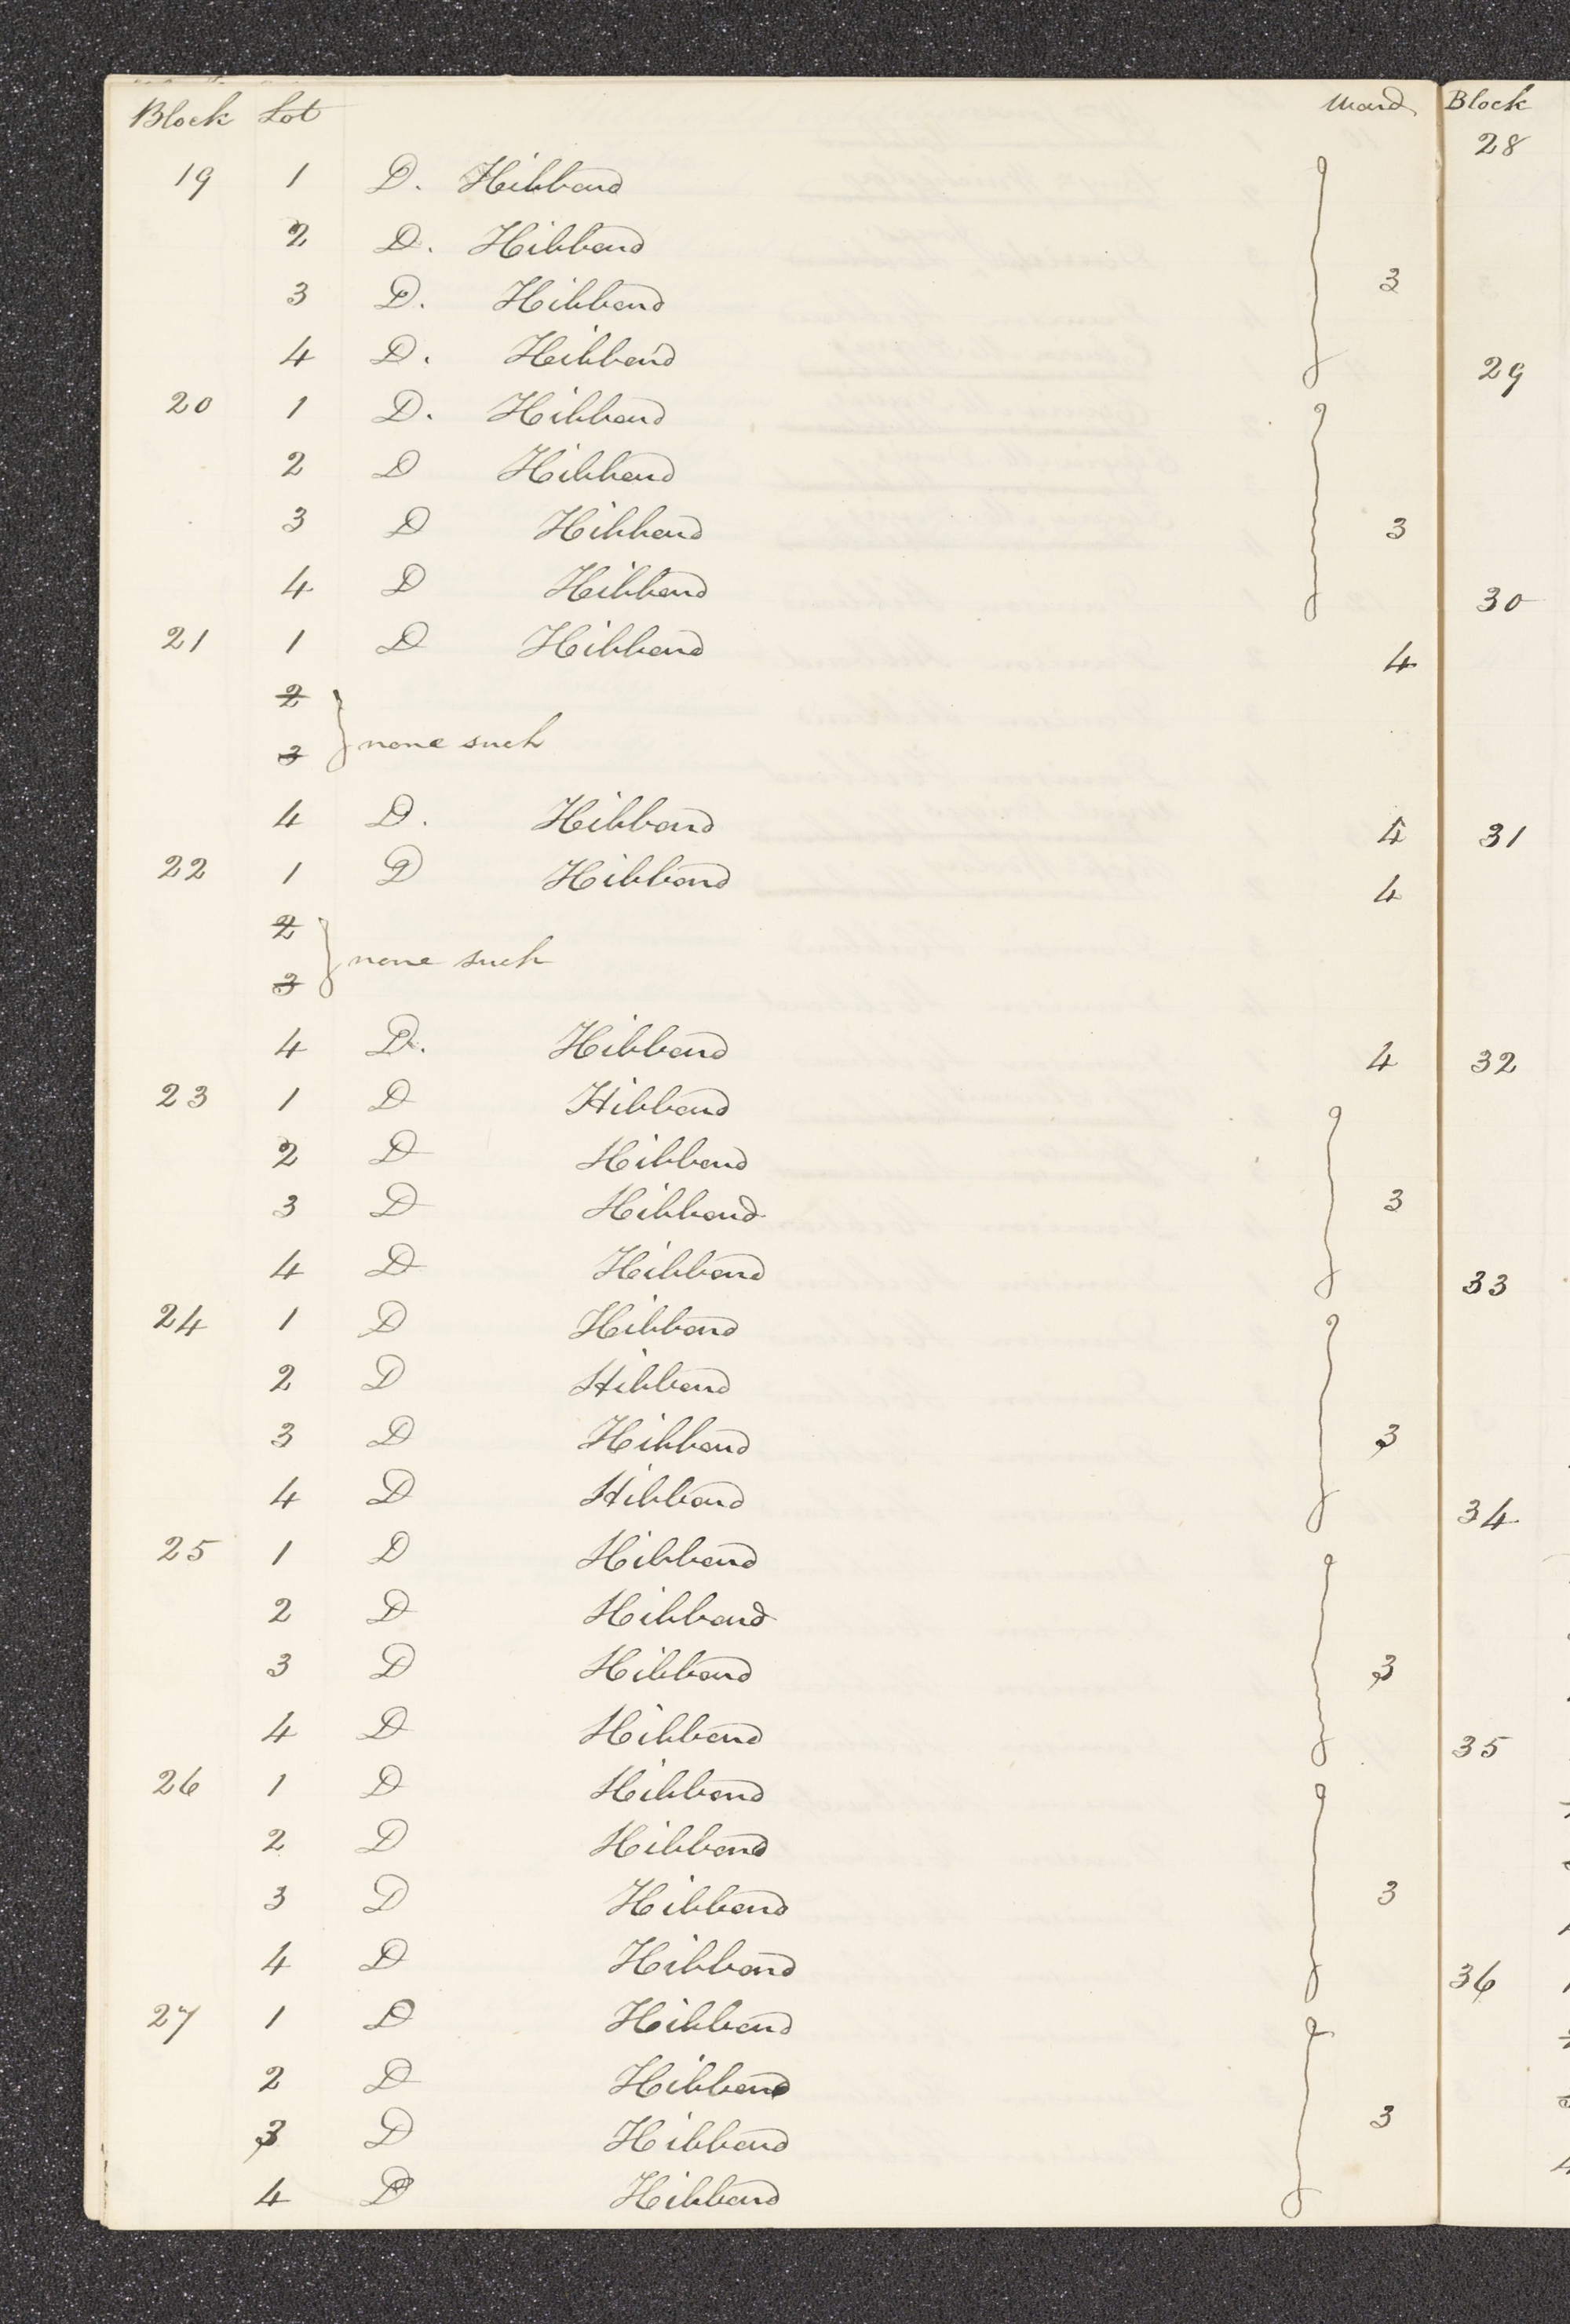 Block Lot Ward
19 1 D. Hibbard
2 D. Hibbard
3 D. Hibbard 3
4 D. Hibbard
20 1 D. Hibbard
2 D Hibbard
3 D Hibbard 3
4 D Hibbard
21 1 D Hibbard 4
2
none such
3
4 D. Hibbard 4
22 1 D Hibbard 4
2
none such
3
4 D. Hibbard 4
23 1 D Hibbard
2 D Hibbard
3 D Hibbard 3
4 D Hibbard
24 1 D Hibbard
2 D Hibbard
3 D Hibbard 3
4 D Hibbard
25 1 D Hibbard
2 D Hibbard
3 D Hibbard 3
4 D Hibbard
26 1 D Hibbard
2 D Hibbard
3 D Hibbard 3
4 D Hibbard
27 1 D Hibbard
2 D Hibbard
3 D Hibbard 3
4 D Hibbard
Block
28
29
30
31
32
33
34
35
36